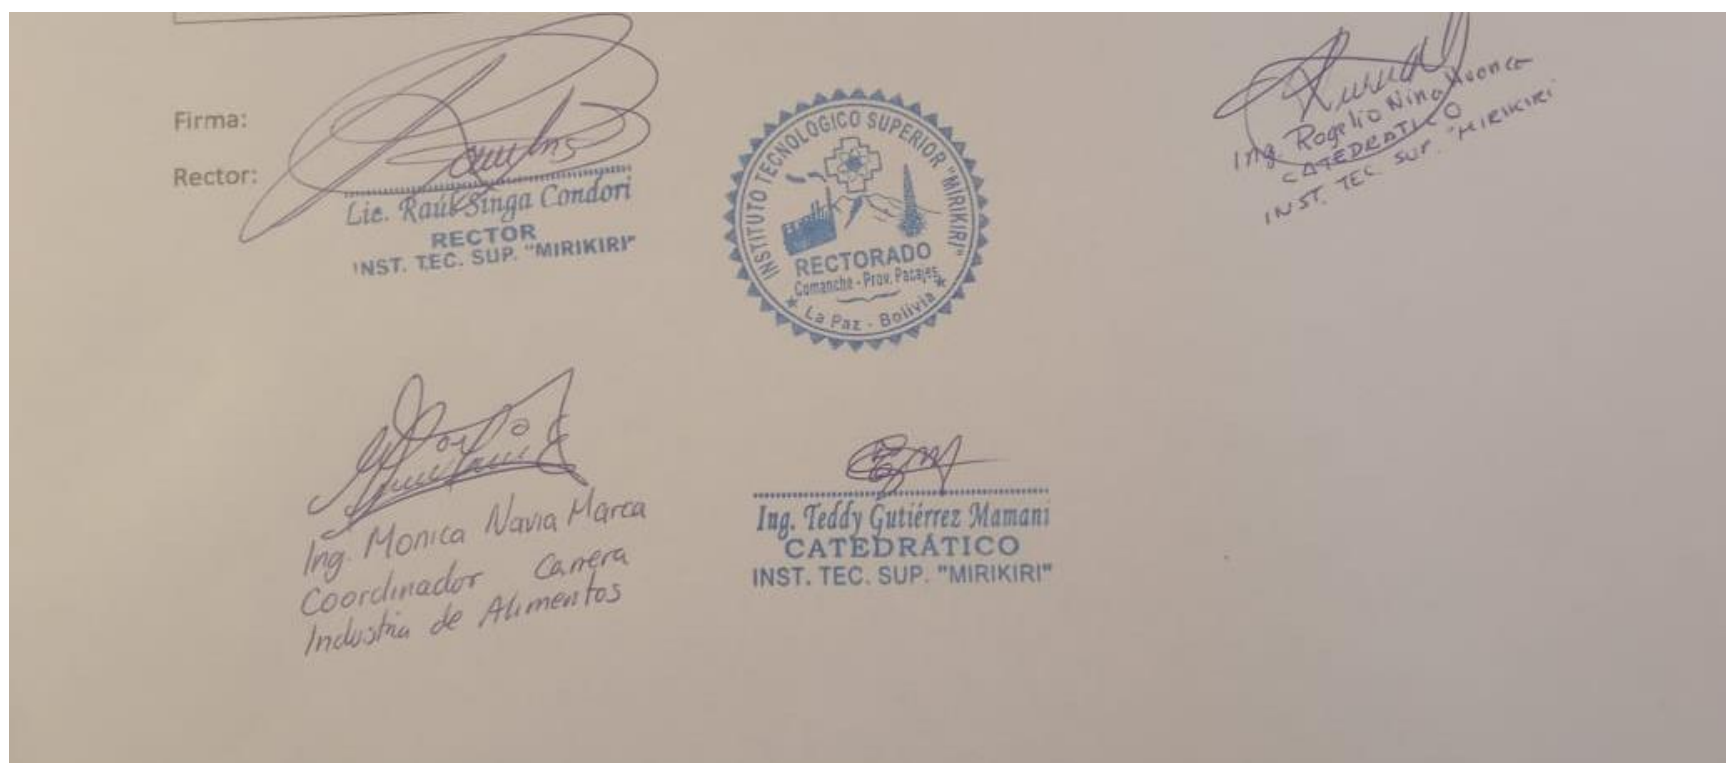 Firma:
Rector:
Lic. Raúl Singa Condori
RECTOR
INST. TEC. SUP. "MIRIKIRI"
INSTITUTO TECNOLOGICO SUPERIOR "MIRIKIRI"
RECTORADO
Comanche - Prov. Pacajes
La Paz - Bolivia
Ing. Rogelio Nina
CATEDRATICO
INST. TEC. SUP. "MIRIKIRI"
Ing. Monica Navia Marca
Coordinador Carrera
Industria de Alimentos
Ing. Teddy Gutiérrez Mamani
CATEDRÁTICO
INST. TEC. SUP. "MIRIKIRI"